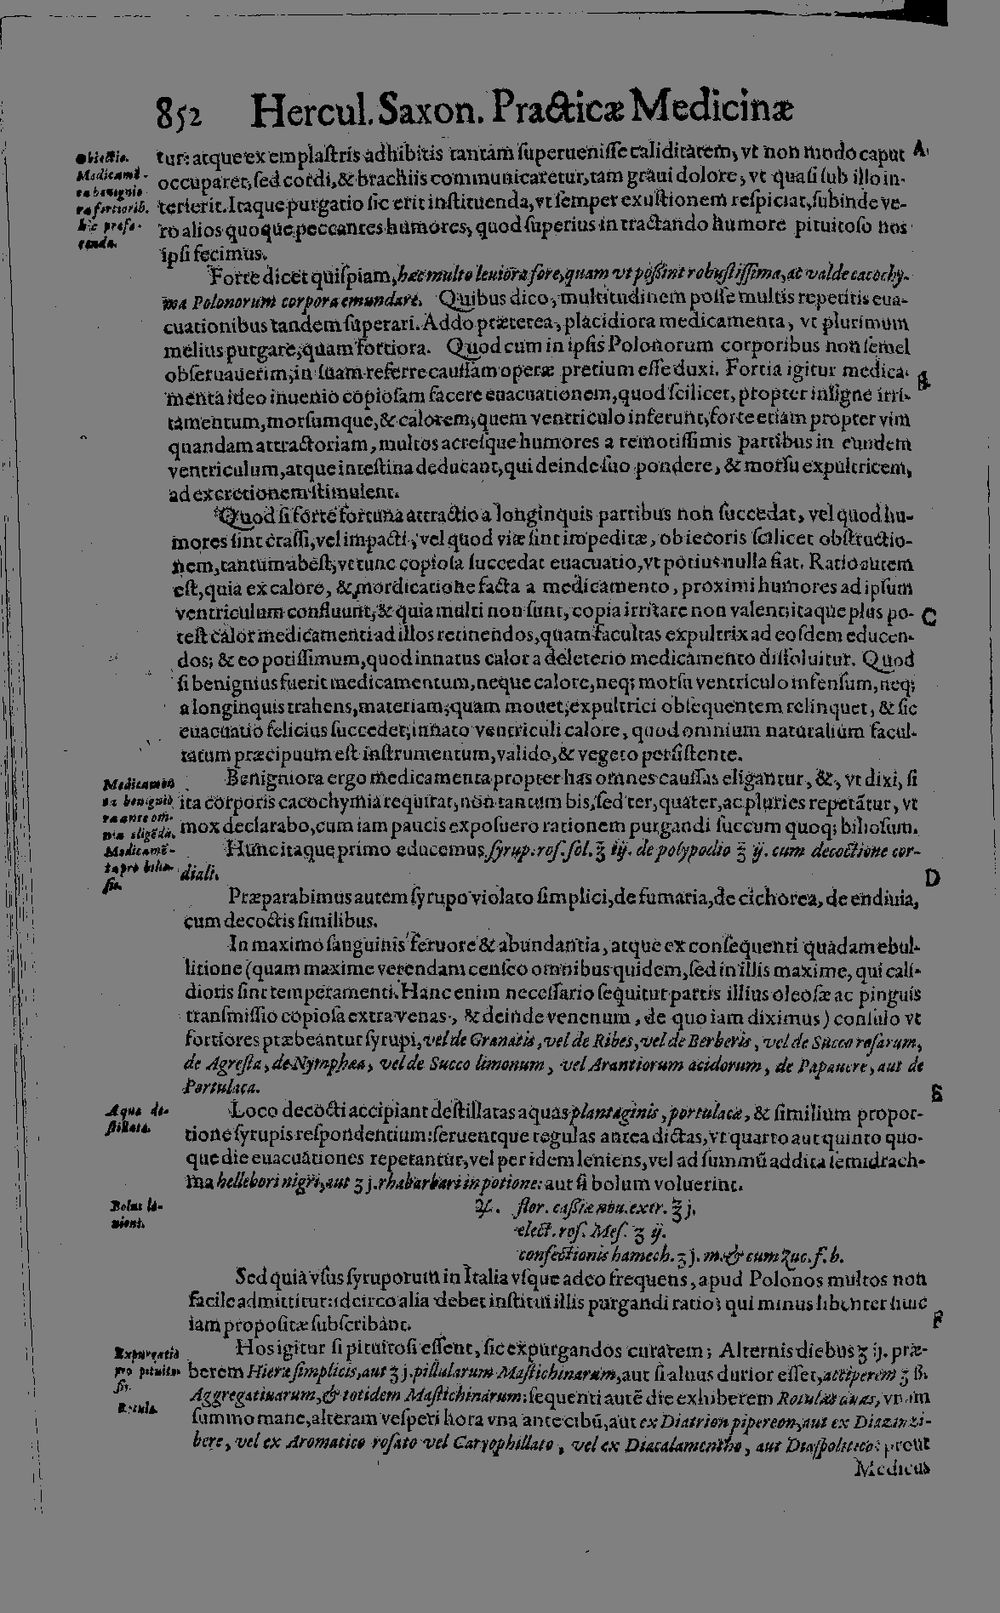 852 Hercul. Saxon. Practicæ Medicinæ
Obiectio.
Medicamē-
ta benignio
ra fortiorib.
hic præfe-
renda.
tur: atque ex emplastris adhibitis tantam superuenisse caliditatem, vt non modo caput A
occuparet, sed cordi, & brachiis communicaretur, tam graui dolore, vt quasi sub illo in-
terierit. Itaque purgatio sic erit instituenda, vt semper exustionem respiciat, subinde ve-
ro alios quoque peccantes humores, quod superius in tractando humore pituitoso nos
ipsi fecimus.
Forte dicet quispiam, hæc multo leuiora fore, quam vt possint robustissima, ac valde cacochy-
ma Polonorum corpora emundare. Quibus dico, multitudinem posse multis repetitis eua-
cuationibus tandem superari. Addo præterea, placidiora medicamenta, vt plurimum
melius purgare, quam fortiora. Quod cum in ipsis Polonorum corporibus non semel
obseruauerim, in suam referre caussam operæ pretium esse duxi. Fortia igitur medica- B
menta ideo inuenio copiosam facere euacuationem, quod scilicet, propter insigne irri-
tamentum, morsumque, & calorem, quem ventriculo inferunt, forte etiam propter vim
quandam attractoriam, multos acresque humores a remotissimis partibus in eundem
ventriculum, atque intestina deducant, qui deinde suo pondere, & morsu expultricem,
ad excretionem stimulent.
Quod si forte fortuna attractio a longinquis partibus non succedat, vel quod hu-
mores sint crassi, vel impacti, vel quod viæ sint impeditæ, ob iecoris scilicet obstructio-
nem, tantum abest, vt tunc copiosa succedat euacuatio, vt potius nulla fiat. Ratio autem
est, quia ex calore, & mordicatione facta a medicamento, proximi humores ad ipsum
ventriculum confluunt, & quia multi non sunt, copia irritare non valent; itaque plus po- C
test calor medicamenti ad illos retinendos, quam facultas expultrix ad eosdem educen-
dos; & eo potissimum, quod innatus calor a deleterio medicamento dissoluitur. Quod
si benignius fuerit medicamentum, neque calore, neq; morsu ventriculo infensum, neq;
a longinquis trahens, materiam, quam mouet, expultrici obsequentem relinquet, & sic
euacuatio felicius succedet, innato ventriculi calore, quod omnium naturalium facul-
tatum præcipuum est instrumentum, valido, & vegeto persistente.
Medicamen
ta benignio
ra ante om-
nia eligēda.
Medicamē-
ta pro bilio-
sis.
Benigniora ergo medicamenta propter has omnes caussas eligantur, &, vt dixi, si
ita corporis cacochymia requirat, non tantum bis, sed ter, quater, ac pluries repetātur, vt
mox declarabo, cum iam paucis exposuero rationem purgandi succum quoq; biliosum.
Hunc itaque primo educemus, syrup. ros. sol. ℥ iij. de polypodio ℥ ij. cum decoctione cor-
diali. D
Præparabimus autem syrupo violato simplici, de fumaria, de cichorea, de endiuia,
cum decoctis similibus.
In maximo sanguinis feruore & abundantia, atque ex consequenti quadam ebul-
litione (quam maxime verendam censeo omnibus quidem, sed in illis maxime, qui cali-
dioris sint temperamenti. Hanc enim necessario sequitur partis illius oleosæ ac pinguis
transmissio copiosa extra venas, & deinde venenum, de quo iam diximus) consulo vt
fortiores præbeantur syrupi, vel de Granatis, vel de Ribes, vel de Berberis, vel de Succo rosarum,
de Agresta, de Nymphæa, vel de Succo limonum, vel Arantiorum acidorum, de Papauere, aut de
Portulaca. E
Aqua de-
stillata.
Loco decocti accipiant destillatas aquas plantaginis, portulacæ, & similium propor-
tione syrupis respondentium: seruentque regulas antea dictas, vt quarto aut quinto quo-
que die euacuationes repetantur, vel per idem leniens, vel ad summū addita semidrach-
ma hellebori nigri, aut ʒ j. rhabarbari in potione: aut si bolum voluerint.
Bolus le-
niens.
℞. flor. cassiæ nou. extr. ℥ j.
elect. ros. Mes. ʒ ij.
confectionis hamech. ʒ j. m. & cum zuc. f. b.
Sed quia vsus syruporum in Italia vsque adeo frequens, apud Polonos multos non
facile admittitur: idcirco alia debet institui illis purgandi ratio; qui minus libenter huic
iam propositæ subscribant. F
Expurgatio
pro pituito-
sis.
Rotula.
Hos igitur si pituitosi essent, sic expurgandos curarem; Alternis diebus ʒ ij. præ-
berem Hieræ simplicis, aut ʒ j. pillularum Mastichinarum, aut si aluus durior esset, acciperem ʒ ß.
Aggregatiuarum, & totidem Mastichinarum: sequenti autē die exhiberem Rotulas duas, vnam
summo mane, alteram vesperi hora vna ante cibū, aut ex Diatrion pipereon, aut ex Diazinzi-
bere, vel ex Aromatico rosato vel Caryophillato, vel ex Diacalamentho, aut Diaspolitico: prout
Medicus